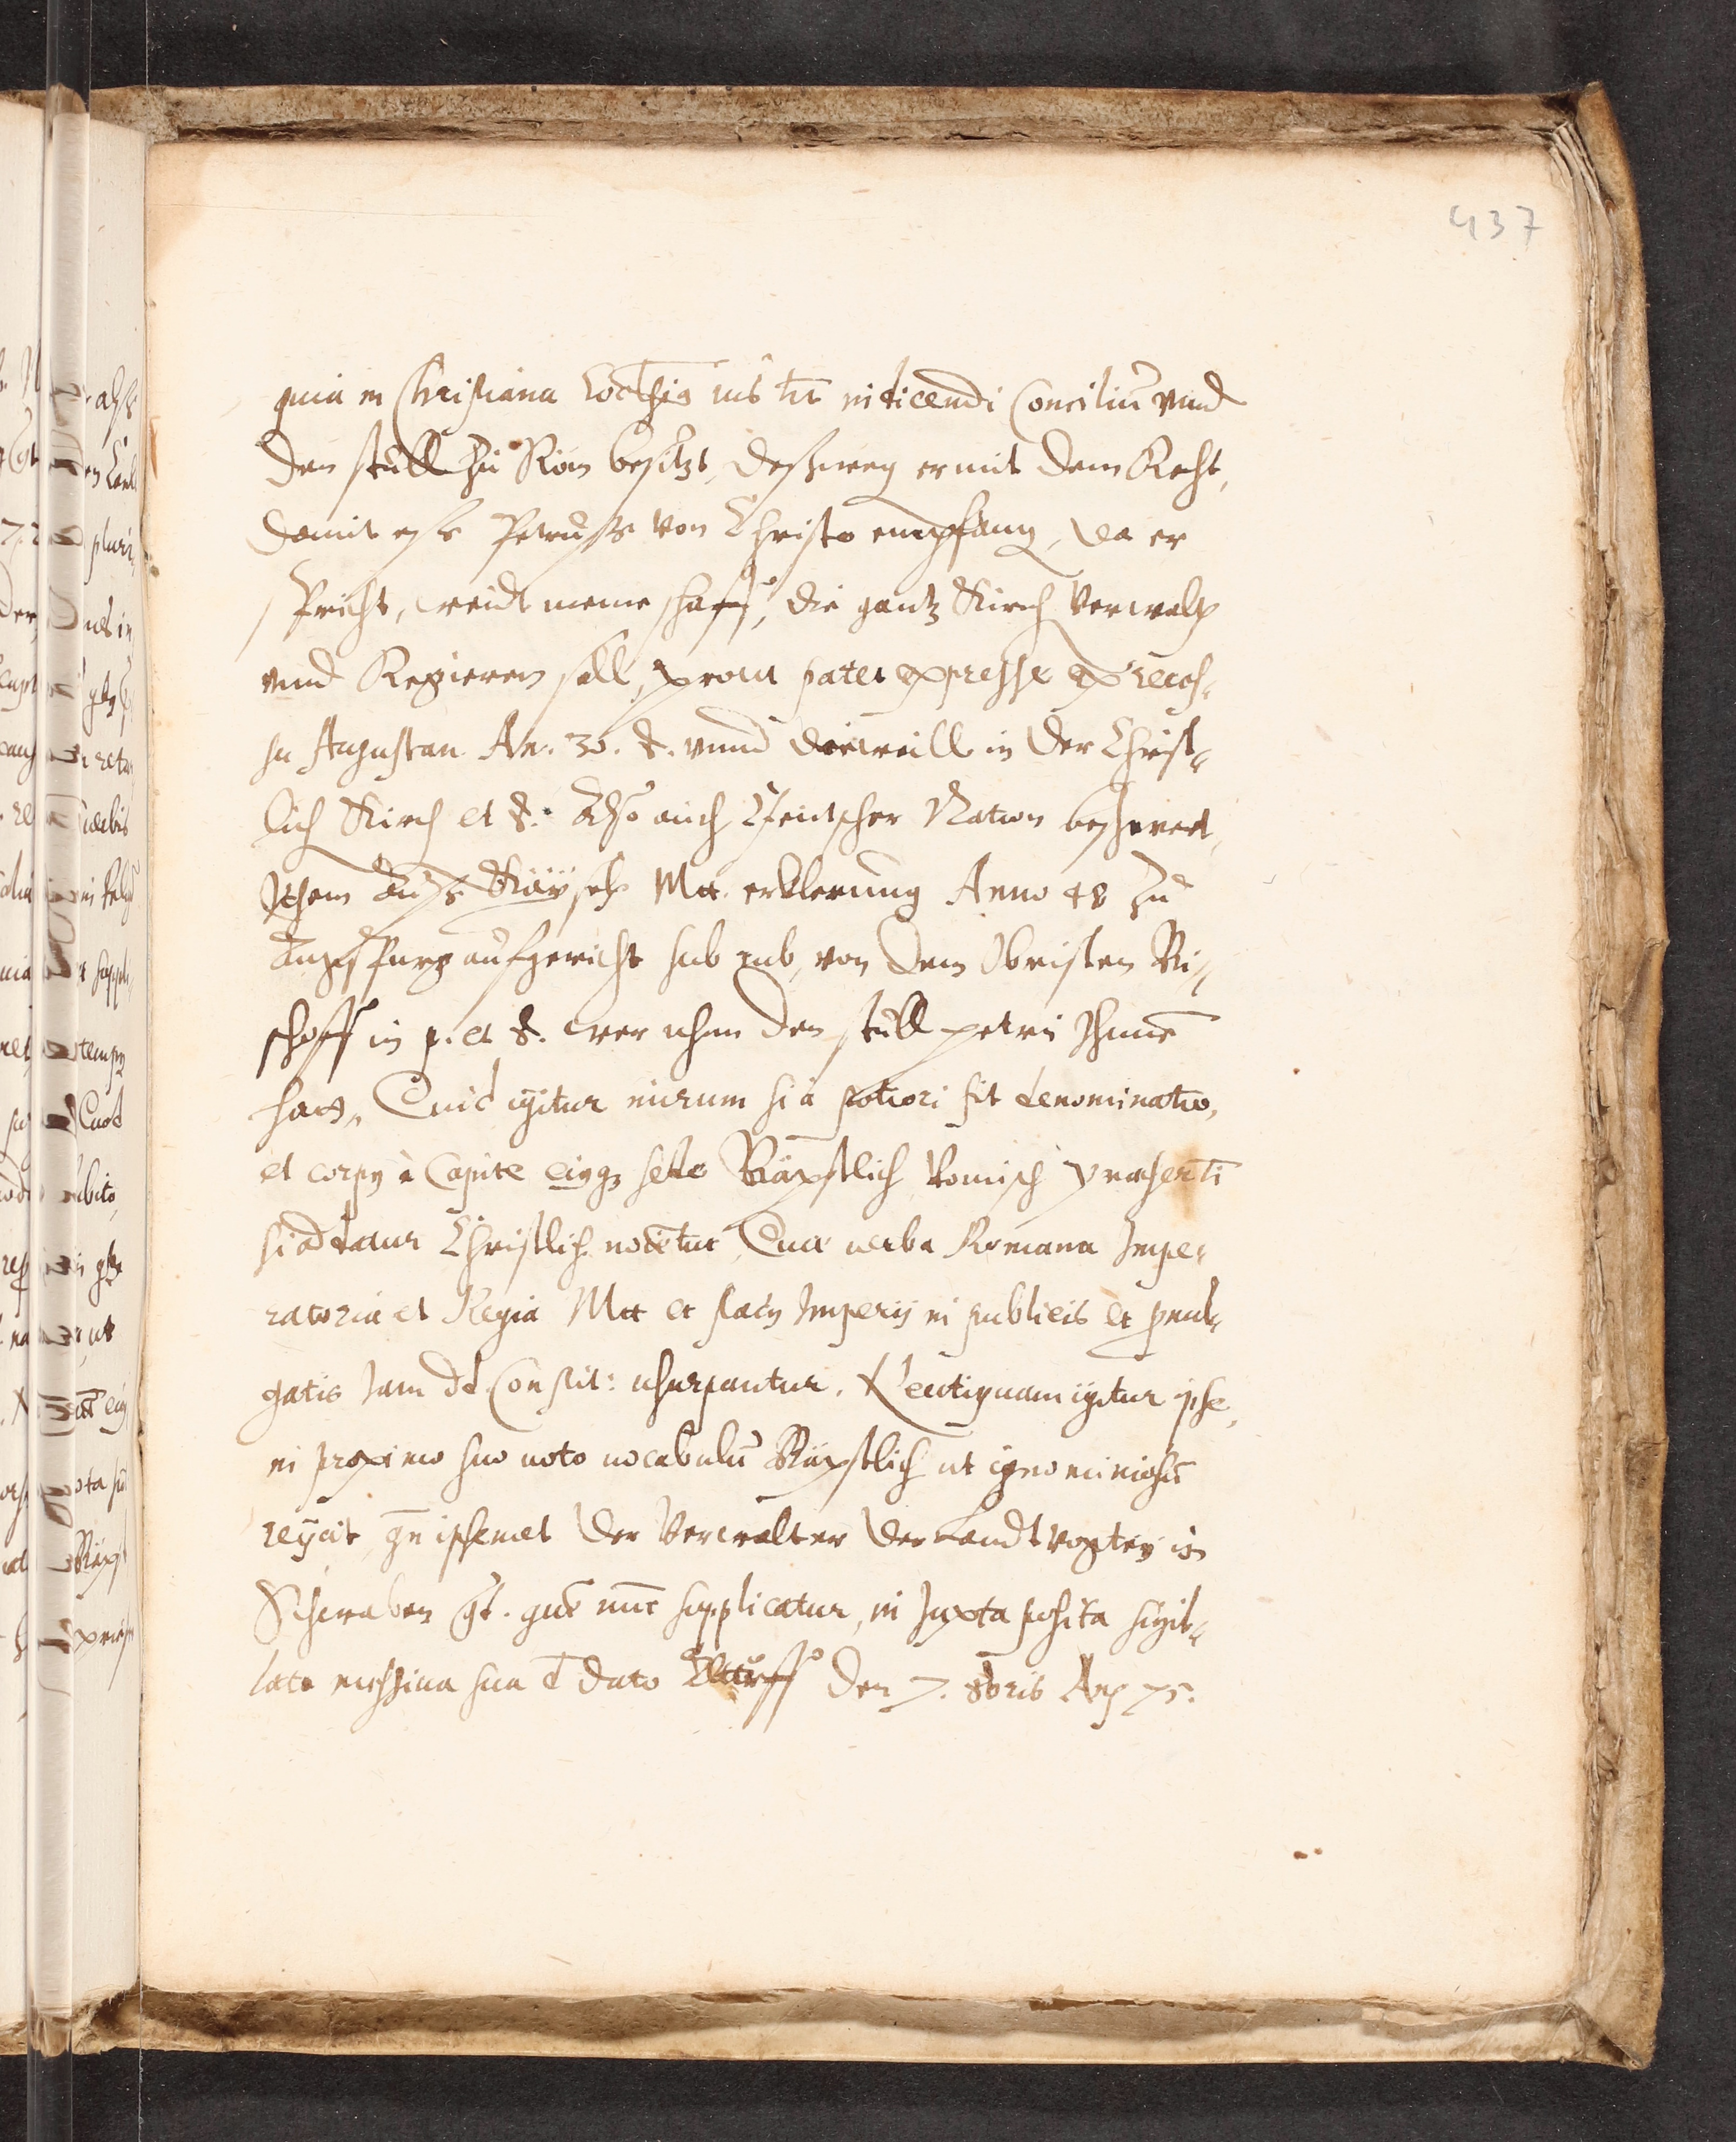 437
quia in Christiana Ecclesia ius tm̄ indicendi Conciliū vnnd
den stull zu Rom besitzt, deßweg er mit dem Recht,
damit eß Petruß von Christo empfang, da er
spricht, weidt meine schaff, die gantz Kirch verwalt
vnnd Regieren soll, prout patet expresse ex reces-
su Augustan. An. 30. &. vnnd dieweill in der Christ-
lich Kirch et &. Also auch Teutscher Nation beschwert,
Item auß Kaÿs. Mtt. erklerung Anno 48 zu
Augspurg aufgericht sub rub, von dem Obristen Bi-
schoff in p. et &. wer nhun den stull petri Ihnne
hatt, Quid igitur mirum si à potiori fit denominatio,
et corpus à Capite eiusq; sede Bäpstlich Romisch praesertī
si addatur Christlich vocetur, Quae verba Romana Impe-
ratoria et Regia Mtt et status Imperij in publicis et promul-
gatis Iam dd. Constit: usurpantur. Neutiquam igitur ipse,
in proximo suo voto vocabulū Bäpstlich ut ignominiosū
reijcit, ipsemet der Verwalter der Landtvogteÿ in
Schwaben gt. quē nūc supplicatur, in Iuxta posita sigil-
lata missiua sua dato den 7. 8bris An 75.